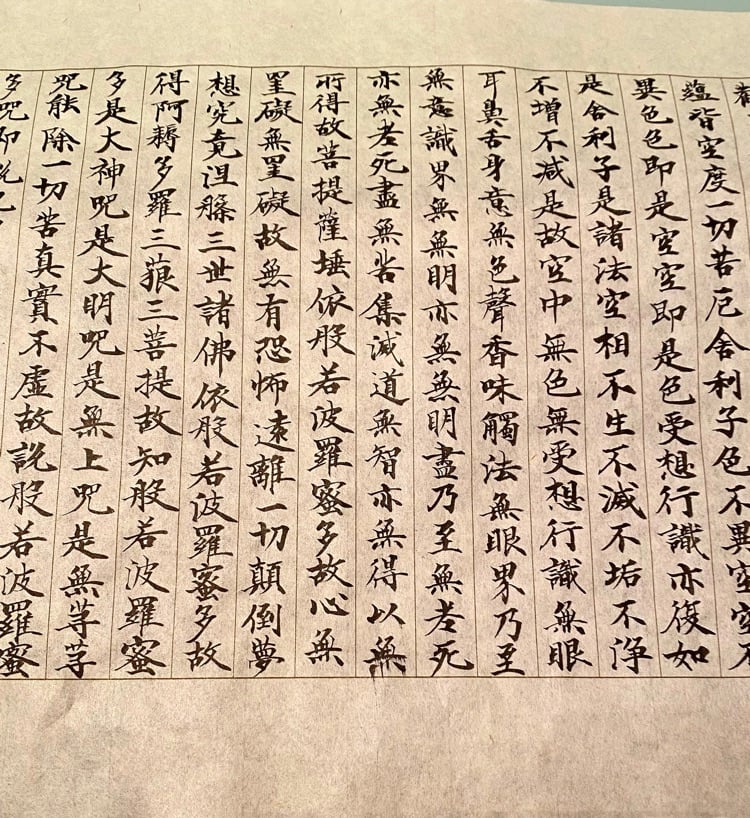 蘊皆空度一切苦厄舍利子色不異空空不
異色色即是空空即是色受想行識亦復如
是舍利子是諸法空相不生不滅不垢不淨
不增不減是故空中無色無受想行識無眼
耳鼻舌身意無色聲香味觸法無眼界乃至
無意識界無無明亦無無明盡乃至無老死
亦無老死盡無苦集滅道無智亦無得以無
所得故菩提薩埵依般若波羅蜜多故心無
罣礙無罣礙故無有恐怖遠離一切顛倒夢
想究竟涅槃三世諸佛依般若波羅蜜多故
得阿耨多羅三藐三菩提故知般若波羅蜜
多是大神咒是大明咒是無上咒是無等等
咒能除一切苦真實不虛故說般若波羅蜜
多咒即說